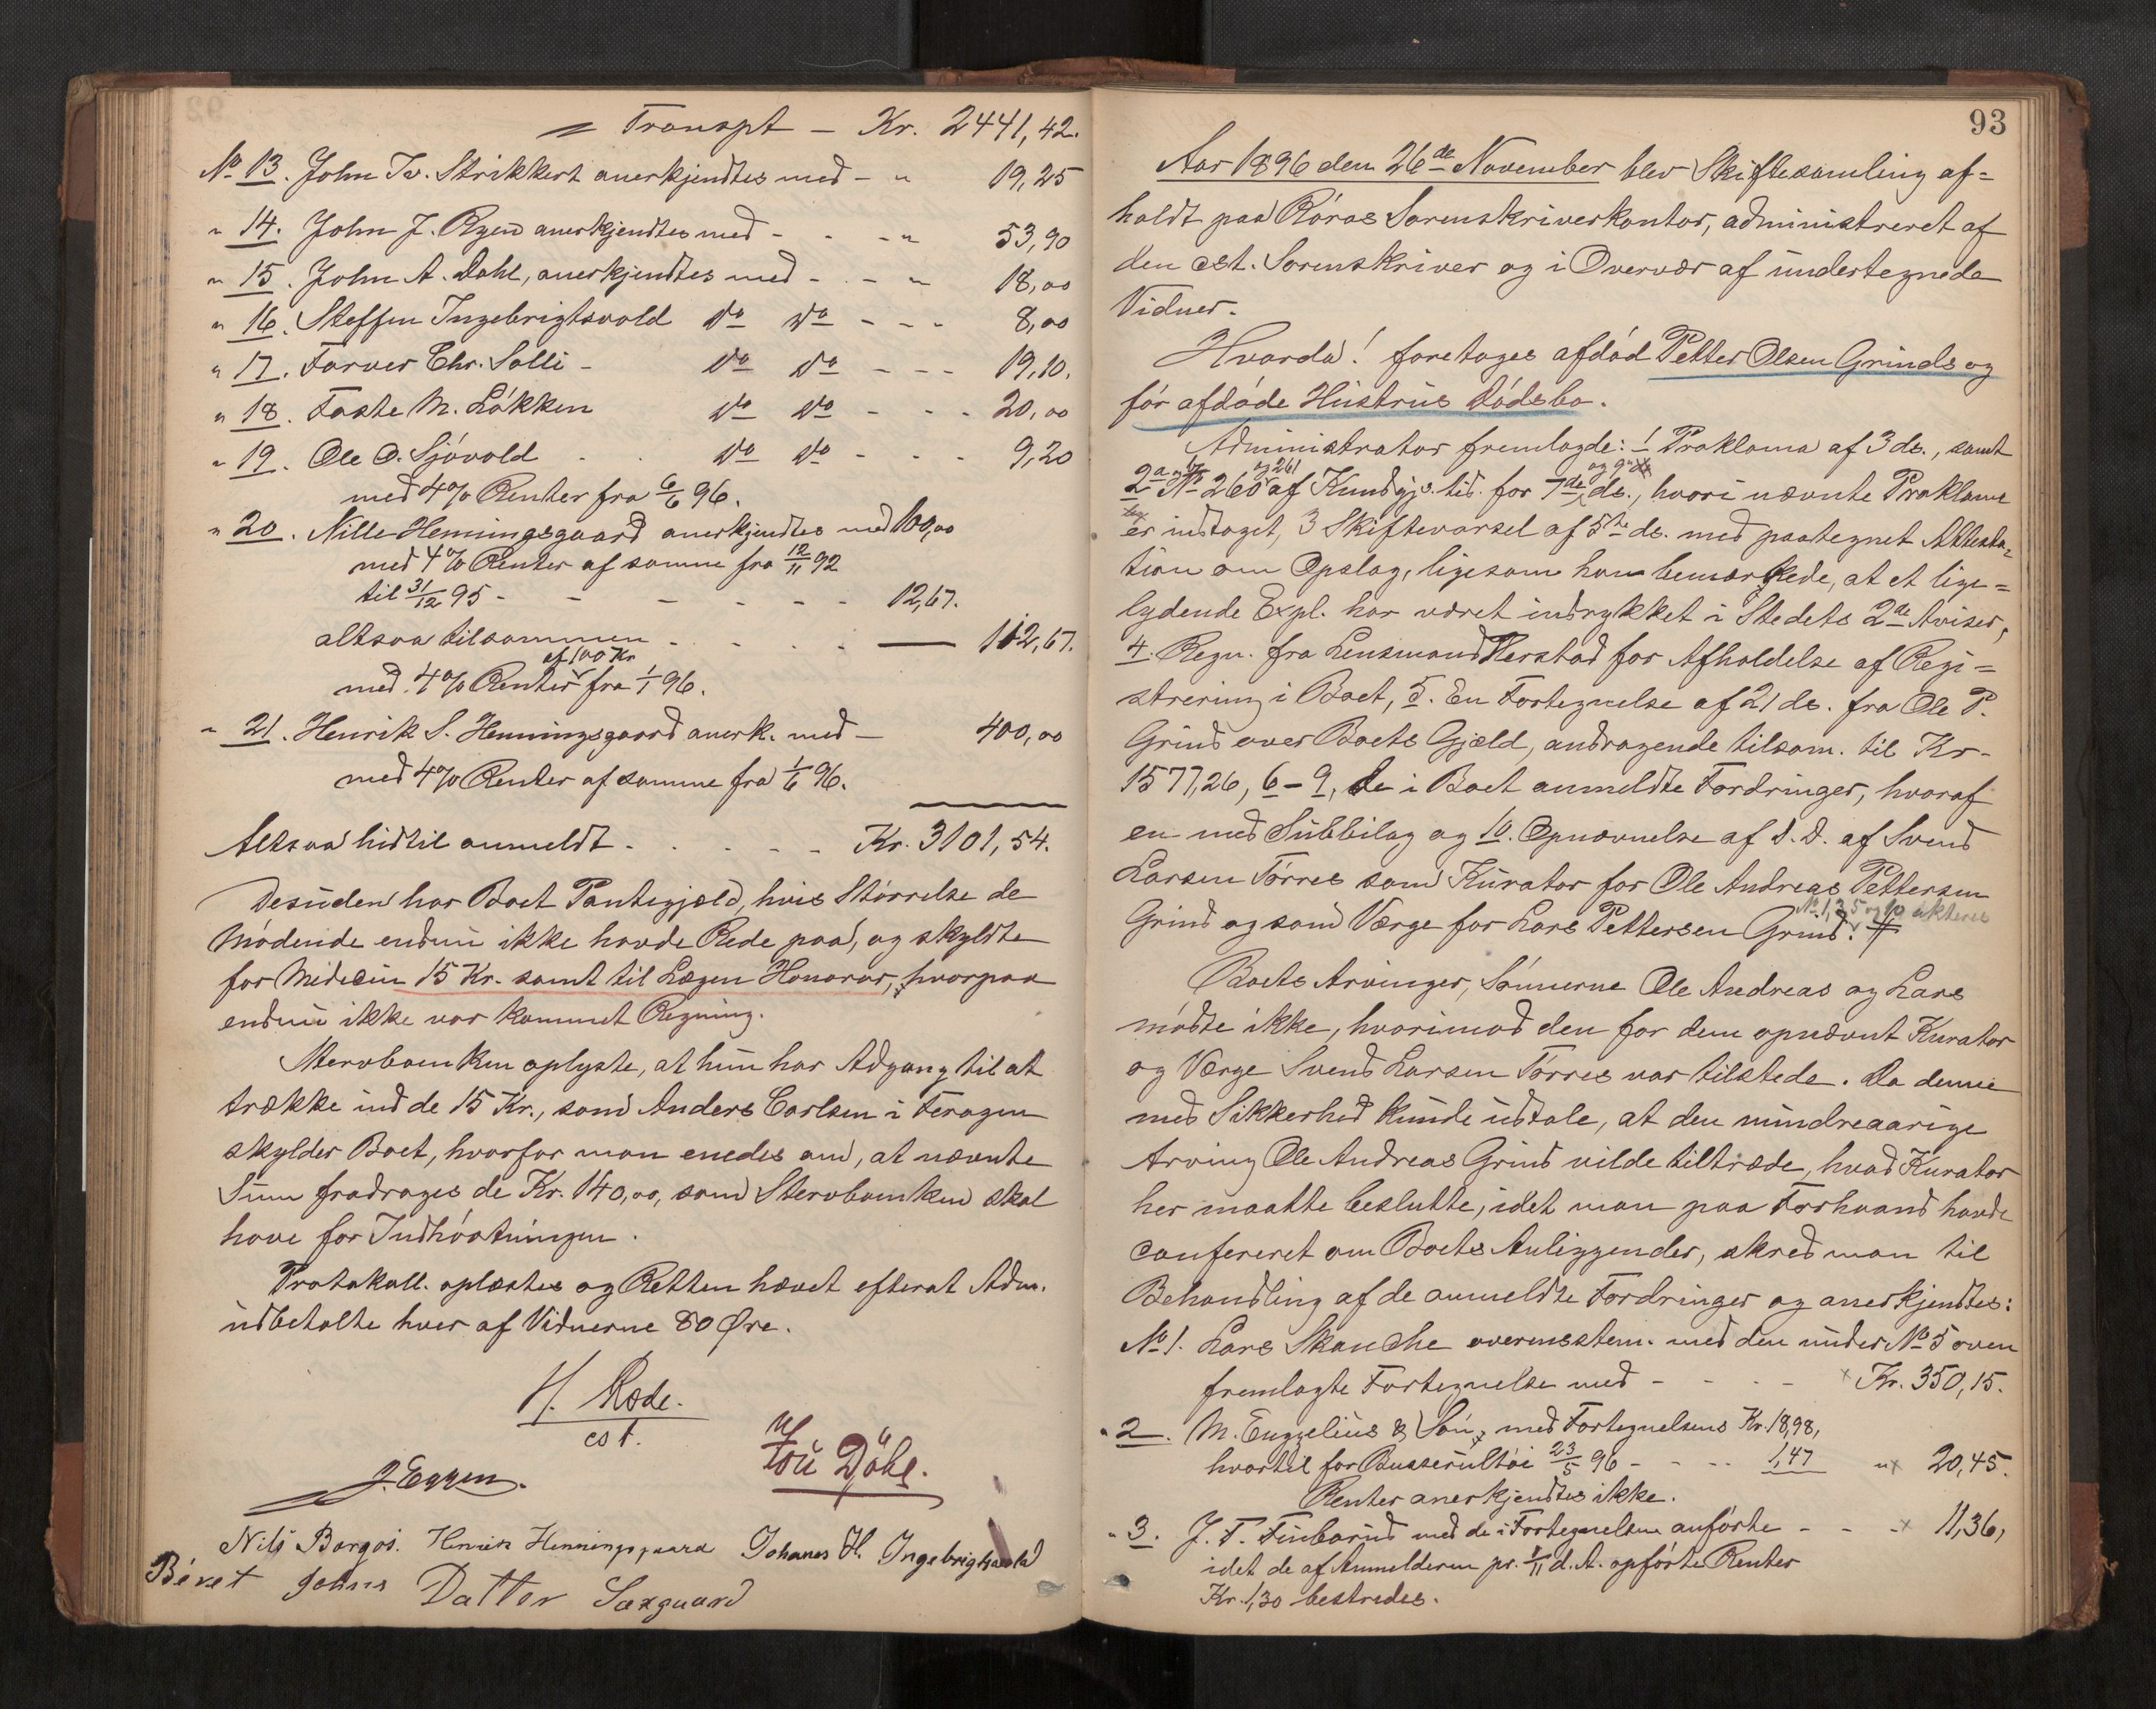 Transpt - Kr. 2441,42.
No 13. John Iv. Strikkert anerkjendtes med - " 19,25
" 14. John J. Ryen anerkjendtes med - - - " 53,90
" 15. John A. Dahl, anerkjendtes med - - " 18,00
" 16. Steffen Ingebrigtsvold do do - - - 8,00
" 17. Farver Chr. Solli - do do - - - 19,10.
" 18. Faste M. Løkken do do - - - 20,00
" 19. Ole O. Sjøvold - . do do - - - 9,20
med 4% Renter fra 6/6 96.
" 20. Nille Henningsgaard anerkjendtes med 100,00
med 4% Renter af samme fra 12/11 92
til 31/12 95 - - - - - - 12,67.
altsaa tilsammen - . . . 112,67.
af 100 Kr
med 4% Renter fra 1/1 96.
" 21. Henrik S. Henningsgaard anerk. med - 400,00
med 4% Renter af samme fra 1/6 96.
Altsaa hidtil anmeldt - . . - - Kr. 3101,54.
Desuden har Boet Pantegjæld, hvis Størrelse de
Mødende endnu ikke havde Rede paa, og skyldte
for Medicin 15 Kr. samt til Lægen Honorar, hvorpaa
endnu ikke var kommet Regning.
Stervboenken oplyste, at hun har Adgang til at
trække ind de 15 Kr., som Anders Carlsen i Feragen
skylder Boet, hvorfor man enedes om, at nævnte
Sum fradrages de Kr. 140,00, som Stervboenken skal
have for Indhøstningen.
Protokoll. oplæstes og Retten hævet efterat Adm.
udbetalte hver af Vidnerne 80 Øre.
H. Rode.
cst.
J. Eggen.
Tøu Döhl.
Nils Borgos. Henrik Henningsgaard Johanes H. Ingebrigtsvold
Béret Johns Datter Saxgaard
93
Aar 1896 den 26de November blev Skiftesamling af=
holdt paa Røros Sorenskriverkontor, administreret af
den cst. Sorenskriver og i Overvær af undertegnede
Vidner.
Hvorda! foretoges afdød Petter Olsen Grinds og
før afdøde Hustrus Dødsbo.
Administrator fremlagde: 1 Proklama af 3 ds., samt
og 261 og 9de
2 a og b No 260 af Kundgjs. tid. for 7de ds., hvori nævnte Proklama
er indtaget, 3 Skiftevarsel af 5te ds. med paategnet Attesta=
tion om Opslag, ligesom han bemærkede, at et lige=
lydende Expl. har været indrykket i Stedets 2de Aviser,
4. Regn. fra Lensmand Herstad for Afholdelse af Regi=
strering i Boet, 5. En Fortegnelse af 21 ds. fra Ole P.
Grind over Boets Gjæld, andragende tilsam. til Kr-
1577,26, 6-9, de i Boet anmeldte Fordringer, hvoraf
en med Subbilag og 10. Opnævnelse af d. D. af Svend
Larsen Tørres som Kurator for Ole Andreas Pettersen
No 1, 3, 5 og 10 akteres
Grind og som Værge for Lars Pettersen Grind.
Boets Arvinger, Sønnerne Ole Andreas og Lars
mødte ikke, hvorimod den for dem opnævnt Kurator
og Værge Svend Larsen Tørres var tilstede. Da denne
med Sikkerhed kunde udtale, at den mindreaarige
Arving Ole Andreas Grind vilde tiltræde, hvad Kurator
her maatte beslutte, idet man paa Forhaand havde
confereret om Boets Anliggender, skred man til
Behandling af de anmeldte Fordringer og anerkjendtes:
No 1. Lars Skancke overensstem. med den under No 5 oven
fremlagte Fortegnelse med - - - - Kr. 350,15.
" 2. M. Engzelius & Søn, med Fortegnelsens Kr. 18,98,
hvortil for Busserultøi 23/5 96 - - - 1,47 " 20,45.
Renter anerkjendtes ikke.
" 3. J. F. Finborud med de i Fortegnelsen anførte - - - 11,36,
idet de af Anmelderen pr. 1/11 d. A. opførte Renter
Kr. 1,30 bestredes.